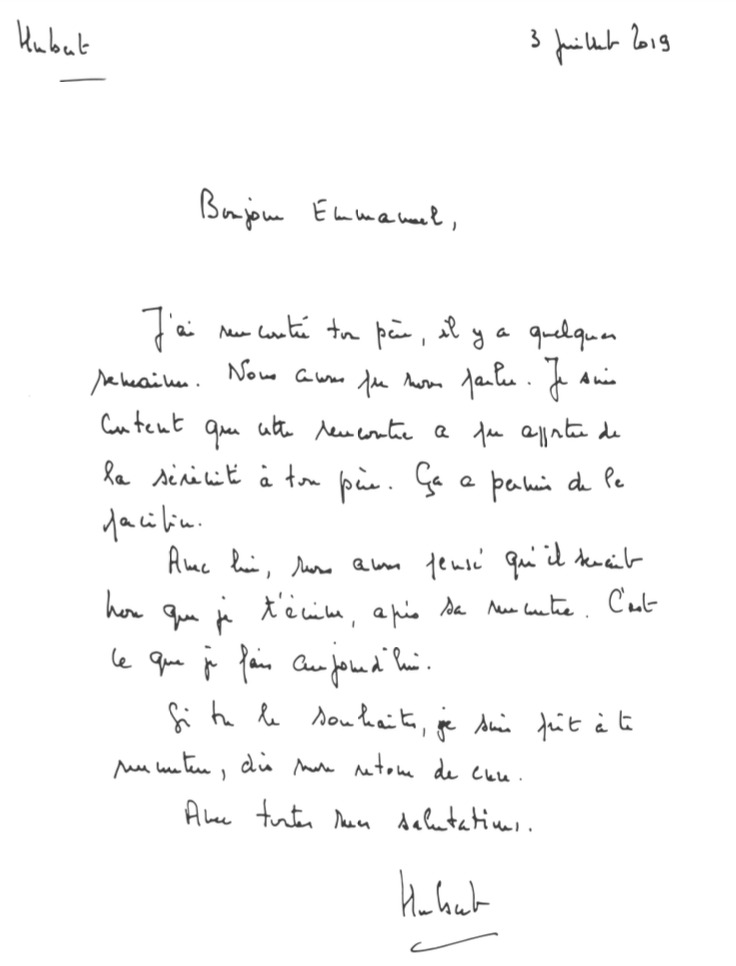 Hubert
3 juillet 2019
Bonjour Emmanuel,
J'ai rencontré ton père, il y a quelques
semaines. Nous avons pu nous parler. Je suis
content que cette rencontre a pu apporter de
la sérénité à ton père. Ça a permis de le
pacifier.
Avec lui, nous avons pensé qu'il serait
bon que je t'écrive, après sa rencontre. C'est
ce que je fais aujourd'hui.
Si tu le souhaites, je suis prêt à te
rencontrer, dès mon retour de cure.
Avec toutes mes salutations.
Hubert